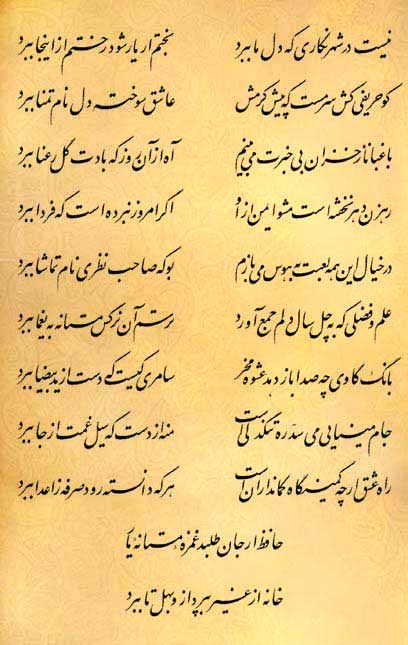 نیست در شهر نگاری که دل ما ببرد بختم ار یار شود رختم از اینجا ببرد
کو حریفی کش سرمست که پیش کرمش عاشق سوخته دل نام تمنا ببرد
باغبانا ز خزان بی خبرت می بینم آه از آن روز که بادت گل رعنا ببرد
رهزن دهر نخفته است مشو ایمن از او اگر امروز نبرده است که فردا ببرد
در خیال این همه لعبت به هوس می بازم بو که صاحب نظری نام تماشا ببرد
علم و فضلی که به چل سال دلم جمع آورد ترسم آن نرگس مستانه به یغما ببرد
بانگ گاوی چه صدا باز دهد عشوه مخر سامری کیست که دست از ید بیضا ببرد
جام مینایی می سد ره تنگ دلی است منه از دست که سیل غمت از جا ببرد
راه عشق ار چه کمینگاه کمانداران است هر که دانسته رود صرفه ز اعدا ببرد
حافظ ار جان طلبد غمزهٔ مستانهٔ یار
خانه از غیر بپرداز و بهل تا ببرد